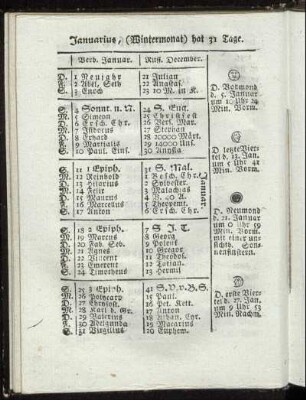 Januarius, (Wintermonat) hat 31 Tage.
Verb. Januar. Russ. December.
D. 1 Neujahr 21 Julian
F. 2 Abel, Seth 22 Anastas.
S. 3 Enoch 23 10 M. in K.
S 4 Sonnt. n. N. 24 S. Eug.
M. 5 Simeon 25 Christfest
D. 6 Ersch. Chr. 26 Verl. Mar.
M. 7 Isidorus 27 Stephan
D. 8 Erhard 28 20000 Märt.
F. 9 Martialis 29 14000 Uns.
S. 10 Paul. Eins. 30 Anysia
D. Vollmond
d. 5. Januar
um 10 Uhr 24
Min. Vorm.
S. 11 1 Epiph. 31 S. Mal.
M. 12 Reinhold 1 Besch. Chr.
D. 13 Hilarius 2 Sylvester
M. 14 Felix 3 Malachias
D. 15 Maurus 4 V. 0. A.
F. 16 Marcellus 5 Theopemt.
S. 17 Anton 6 Ersch. Chr.
Januar.
D. letzte Vier-
tel d. 13. Jan.
um 5 Uhr 41
Min. Vorm.
S. 18 2 Epiph. 7 S. J. T.
M. 19 Marcus 8 Georg
D. 20 Fab. Seb. 9 Polieft
M. 21 Agnes 10 Gregor
D. 22 Vincent 11 Theodos.
F. 23 Emerent 12 Tatian.
S. 24 Timotheus 13 Hermil
D. Neumond
d. 21 Januar
um 0 Uhr 59
Min. Vorm.
mit einer un-
sichtb. Son-
nenfinstern.
S. 25 3 Epiph. 14 S. V. v. B. S.
M. 26 Polycarp 15 Paul.
D. 27 Chrysost. 16 Pet. Kett.
M. 28 Karl d. Gr. 17 Anton
D. 29 Valerius 18 Athan. Cyr.
F. 30 Adelgunda 19 Macarius
S. 31 Virgilius 20 Euphem.
D. erste Vier-
tel d. 27. Jan.
um 9 Uhr 53
Min. Nachts.